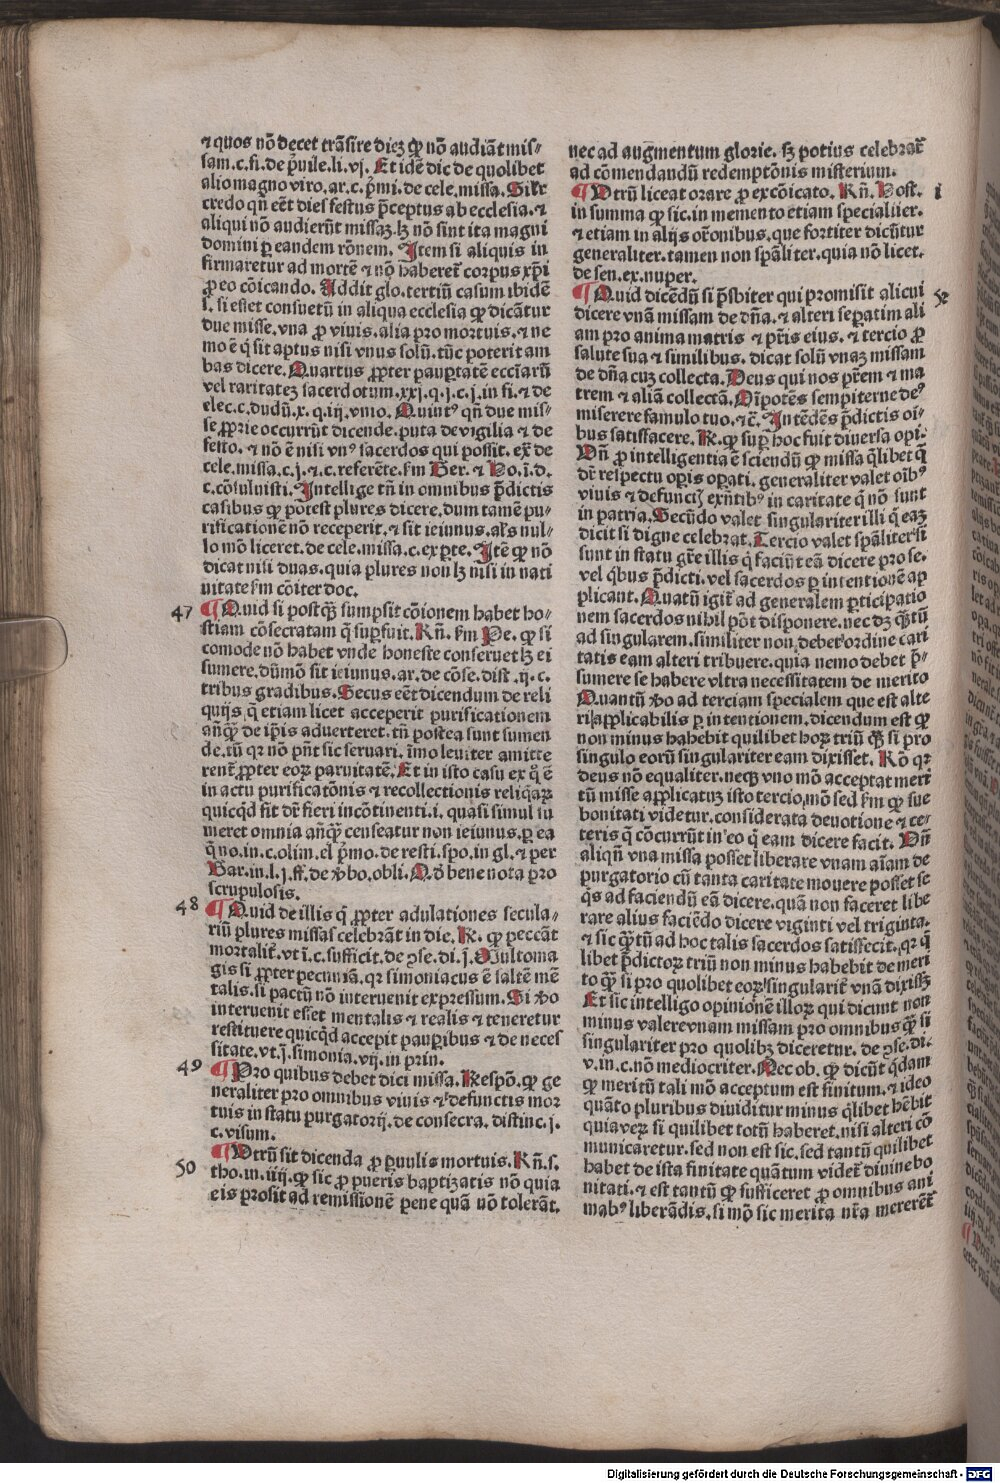 ⁊ quos nō decet trāsire diez ꝙ nō audiāt mis⸗
sam.c.fi.de p̄uile.li.vj. Et idē dic de quolibet
alio magno viro.ar.c.p̄mi.de cele.missa. Silr
credo qn̄ eēt dies festus p̄ceptus ab ecclesia.⁊
aliqui nō audierūt missaꝫ.lꝫ nō sint ita magni
domini ꝑ eandem rōnem. Item si aliquis in
firmaretur ad mortē ⁊ nō haberet̄ corpus xp̄i
ꝓ eo cōicando. Addit glo.tertiū casum ibidē
s. si esset consuetū in aliqua ecclesia ꝙ dicātur
due misse.vna ꝓ viuis.alia pro mortuis.⁊ ne
mo ē q̇ sit aptus nisi vnus solū.tūc poterit am
bas dicere. Quartus ꝓpter pauꝑtatē eccl̄iarū
vel raritateꝫ sacerdotum.xxj.q.j.c.j.in fi.⁊ de
elec.c.dudū.x.q.iij.vnio. Quintꝰ qn̄ due mis⸗
se ꝓprie occurrūt dicende.puta de vigilia ⁊ de
festo.⁊ nō ē nisi vnꝰ sacerdos qui possit.ex̄ de
cele.missa.c.j.⁊.c.referēte.s̄m Ber.⁊ Ho.ī.d.
c.cōsuluisti. Intellige tn̄ in omnibus p̄dictis
casibus ꝙ potest plures dicere.dum tamē pu⸗
rificationē nō receperit.⁊ sit ieiunus.al's nul⸗
lo mō liceret.de cele.missa.c.ex ꝑte. Itē ꝙ nō
dicat nisi duas.quia plures non lꝫ nisi in nati
uitate s̄m cōiter doc.
47 ¶ Quid si postq̄ꝫ sumpsit cōionem habet ho⸗
stiam cōsecratam q̄ suꝑfuit. Rn̄. s̄m Pe. ꝙ si
comode nō habet vnde honeste conseruet lꝫ ei
sumere.dūmō sit ieiunus.ar.de cōse.dist.ij.c.
tribus gradibus. Secus eēt dicendum de reli
quijs q̄ etiam licet acceperit purificationem
anq̄ꝫ de ip̄is aduerteret.tn̄ postea sunt sumen
de.tū qꝛ nō pn̄t sic seruari.īmo leuiter amitte
rent̄ ꝓpter eoꝝ paruitatē. Et in isto casu ex q̊ ē
in actu purificatōnis ⁊ recollectionis reliq̄aꝝ
quicq̇d fit dr̄ fieri incōtinenti.i. quasi simul su
meret omnia anq̄ꝫ censeatur non ieiunus.ꝑ ea
q̄ no.in.c.olim.el p̄mo.de resti.spo.in gl.⁊ per
Bar.in.l.j.ff.de ꝟbo.obli. Qd̄ bene nota pro
scrupulosis.
48 ¶ Quid de illis q̇ ꝓpter adulationes secula⸗
riū plures missas celebrāt in die. R. ꝙ peccāt
mortalit̄.vt ī.c.sufficit.de ꝯse.di.j. Multoma
gis si ꝓpter pecuniā.qꝛ simoniacus ē saltē mē
talis.si pactū nō interuenit expressum. Si ꝟo
interuenit esset mentalis ⁊ realis ⁊ teneretur
restituere quicq̇d accepit pauꝑibus ⁊ de neces
sitate.vt.j.simonia.vij.in prin.
49 ¶ Pro quibus debet dici missa. Respō. ꝙ ge
neraliter pro omnibus viuis ⁊ defunctis mor
tuis in statu purgatorij.de consecra.distinc.j.
c.visum.
50 ¶ Vtrū sit dicenda ꝓ ꝑuulis mortuis. Rn̄.s.
tho.in.iiij.ꝙ sic ꝓ pueris baptizatis nō quia
eis prosit ad remissionē pene quā nō tolerāt.
nec ad augmentum glorie.sꝫ potius celebrat̄
ad cōmendandū redemptōnis misterium.
¶ Vtrū liceat orare ꝓ excōicato. Rn̄. Host. i
in summa ꝙ sic.in memento etiam specialiter.
⁊ etiam in alijs or̄onibus.que fortiter dicūtur
generaliter.tamen non sp̄aliter.quia nō licet.
de sen.ex.nuper.
¶ Quid dicēdū si p̄sbiter qui promisit alicui
dicere vnā missam de dn̄a.⁊ alteri seꝑatim ali
am pro anima matris ⁊ pr̄is eius.⁊ tercio ꝓ
salute sua ⁊ similibus.dicat solū vnaꝫ missam
de dn̄a cuꝫ collecta. Deus qui nos pr̄em ⁊ ma
trem ⁊ aliā collectā. Oīpotēs sempiterne deꝰ
miserere famulo tuo.⁊c̄. Intēdēs p̄dictis oī⸗
bus satisfacere. R. ꝙ suꝑ hoc fuit diuersa opi⸗
Vn̄ ꝓ intelligentia ē sciendū ꝙ missa q̄libet q̄
dr̄ respectu oꝑis oꝑati.generaliter valet oībꝰ
viuis ⁊ defunctꝭ exn̄tibꝰ in caritate q̇ nō sunt
in patria. Secūdo valet singulariter illi q̇ eaꝫ
dicit si digne celebrat. Tercio valet sp̄aliter si
sunt in statu gr̄e illis q̇ faciūt eā dicere pro se.
vel q̇bus p̄dicti.vel sacerdos ꝑ intentionē ap
plicant. Quātū igit̄ ad generalem ꝑticipatio
nem sacerdos nihil pōt disponere.nec dꝫ q̄ꝫtū
ad singularem.similiter non debet ordine cari
tatis eam alteri tribuere.quia nemo debet p̄⸗
sumere se habere vltra necessitatem de merito
Quantū ꝟo ad terciam specialem que est alte
ri applicabilis ꝑ intentionem.dicendum est ꝙ
non minus habebit quilibet hoꝝ triū q̄ꝫ si pro
singulo eorū singulariter eam dixisset. Rō qꝛ
deus nō equaliter.neqꝫ vno mō acceptat meri
tū misse applicatuꝫ isto tercio mō sed s̄m ꝙ sue
bonitati videtur.considerata deuotione ⁊ ce⸗
teris q̄ cōcurrūt in eo q̇ eam dicere facit. Vn̄
aliqn̄ vna missa posset liberare vnam aīam de
purgatorio cū tanta caritate mouere posset se
q̇s ad faciendū eā dicere.quā non faceret libe
rare alius faciēdo dicere viginti vel triginta.
⁊ sic q̄ꝫtū ad hoc talis sacerdos satisfecit.qꝛ q̇
libet p̄dictoꝝ triū non minus habebit de meri
to q̄ꝫ si pro quolibet eoꝝ singularit̄ vnā dixissꝫ
Et sic intelligo opinionē illoꝝ qui dicunt non
minus valere vnam missam pro omnibus q̄ꝫ si
singulariter pro quolibꝫ diceretur.de ꝯse.di.
v.in.c.nō mediocriter. Nec ob. ꝙ dicūt q̇dam
ꝙ meritū tali mō acceptum est finitum.⁊ ideo
quāto pluribus diuiditur minus q̇libet hēbit
quia veꝝ si quilibet totū haberet.nisi alteri cō
municaretur.sed non est sic.sed tantū quilibet
habet de ista finitate quātum videt̄ diuine bo
nitati.⁊ est tantū ꝙ sufficeret ꝓ omnibus ani
mabꝰ liberādis.si mō sic merita nr̄a mererēt̄
Digitalisierung gefördert durch die Deutsche Forschungsgemeinschaft - DFG